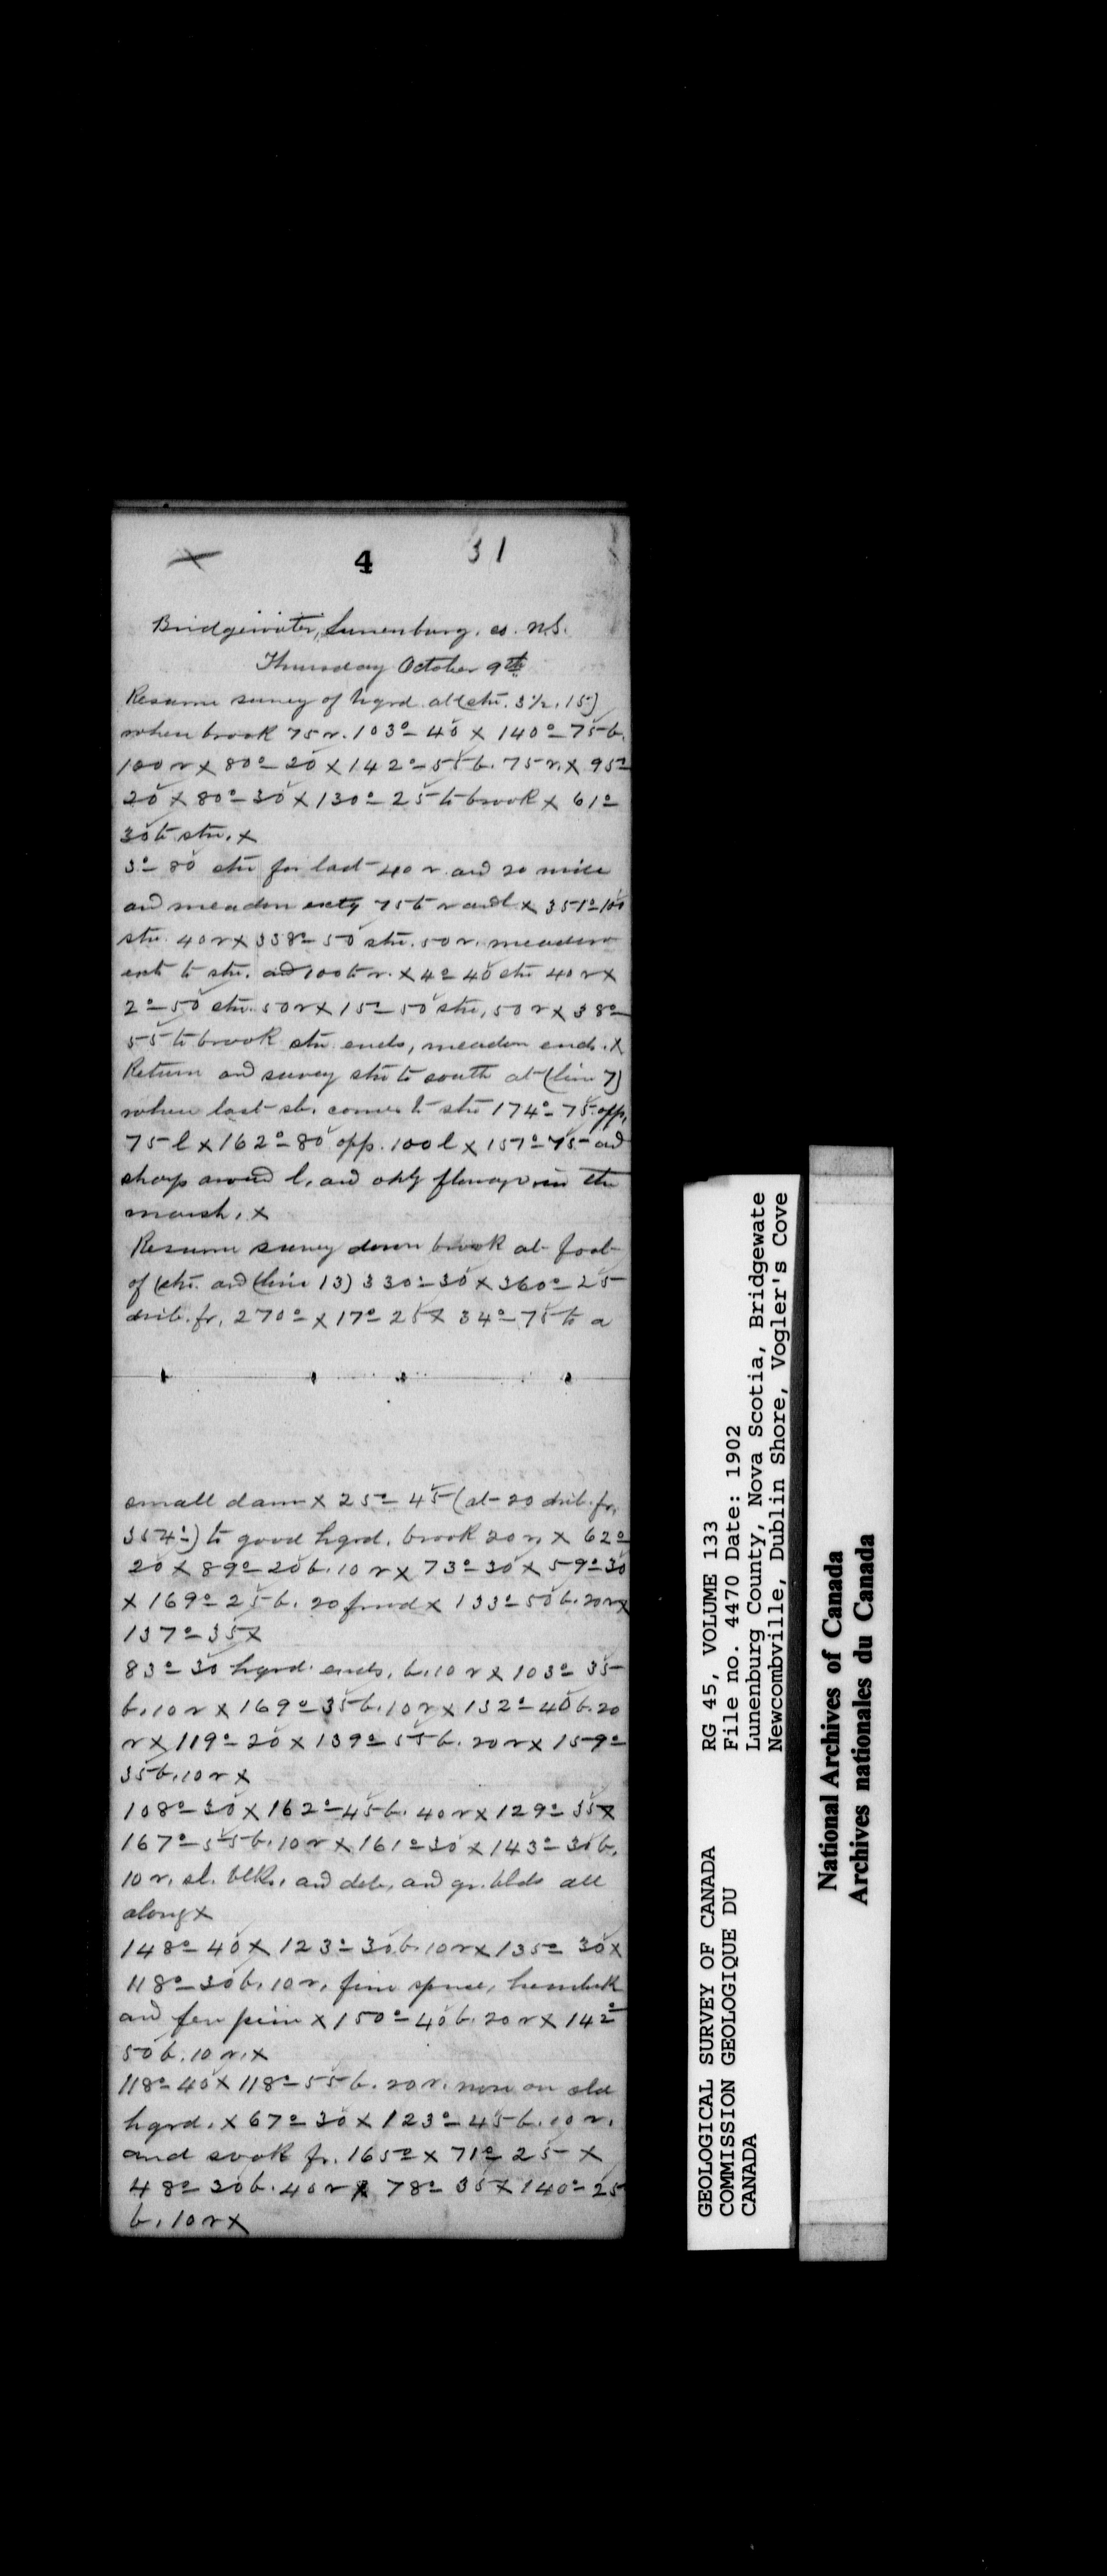 4 31
Bridgewater, Lunenburg. co. N.S.
Thursday October 9th
Resume survey of hgrd. at (str. 3½, 15)
where brook 75 r. 103°-40 x 140°-75 b.
100 r x 80°-20 x 142°-55 b. 75 r. x 95°-
20 x 80°-30 x 130°-25 to brook x 61°-
30 to str. x
3°-80 str for last 40 r. and 20 wide
and meadow 75 to r and l x 351°-100
str. 40 r x 338°-50 str. 50 r. meadow
ext to str. and 100 to r. x 4°-40 str 40 r x
2°-50 str. 50 r x 15°-50 str, 50 r x 38°-
55 to brook str ends, meadow ends. x
Return and survey str to south at (line 7)
where last str. comes to str 174°-75 opp,
75 l x 162°-80 opp. 100 l x 157°-75 and
sharp around l, and only flowage in the
marsh. x
Resume survey down brook at foot
of (str. and (line 13) 330°-30 x 360°-25
drib. fr. 270° x 17°-25 x 34°-75 to a
small dam x 25°-45 (at 20 drib. fr.
354°) to good hgrd. brook 20 r, x 62°-
20 x 89°-20 b. 10 r x 73°-30 x 59°-30
x 169°-25 b. 20 x 133°-50 b. 20 r x
137°-35 x
83°-30 hgrd. ends, b. 10 r x 103°-35
b. 10 r x 169°-35 b. 10 r x 132°-40 b. 20
r x 119°-20 x 139°-55 b. 20 r x 159°-
35 b. 10 r x
108°-30 x 162°-45 b. 40 r x 129°-35 x
167°-55 b. 10 r x 161°-30 x 143°-30 b.
10 r, sl. blks, and deb, and gr. blds all
along x
148°-40 x 123°-30 b. 10 r x 135°-30 x
118°-30 b. 10 r, fine spruce, hemlock
and few pine x 150°-40 b. 20 r x 142°
50 b. 10 r. x
118°-40 x 118°-55 b. 20 r. now on old
hgrd. x 67°-30 x 123°-45 b. 10 r.
and sook fr. 165° x 71°-25 x
48°-20 b. 40 r x 78°-35 x 140°-25
b. 10 r x
GEOLOGICAL SURVEY OF CANADA
COMMISSION GEOLOGIQUE DU
CANADA
RG 45, VOLUME 133
File no. 4470 Date: 1902
Lunenburg County, Nova Scotia, Bridgewate
Newcombville, Dublin Shore, Vogler's Cove
National Archives of Canada
Archives nationales du Canada